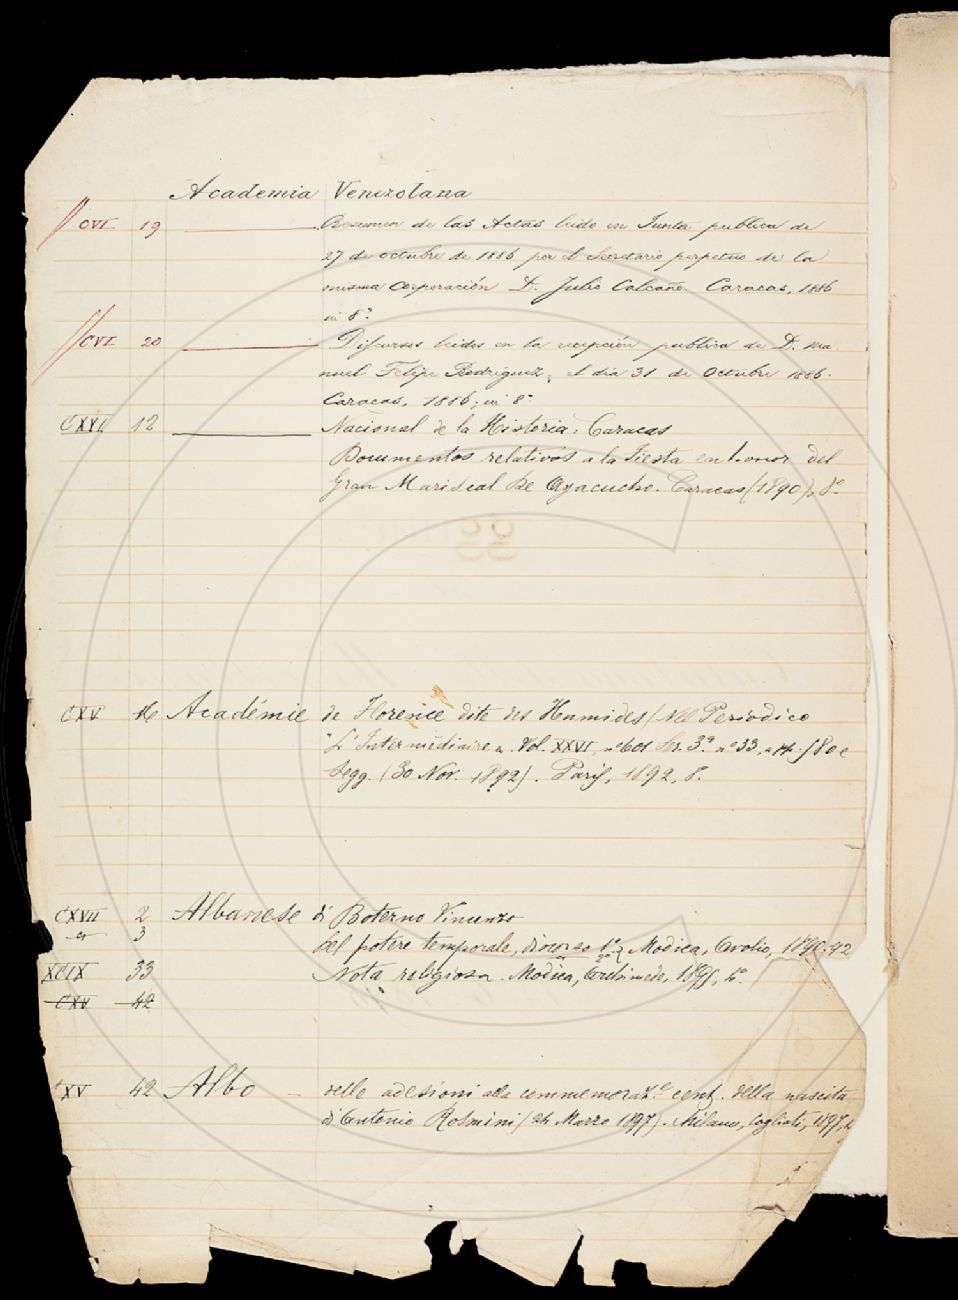 Academia Venezolana
CVI 19 Resumen de las Actas leido en Junta publica de
27 de octubre de 1886 por el Secretario perpetuo de la
misma Corporación D. Julio Calcaño. Caracas, 1886
in 8º
CVI 20 Discursos leidos en la recepción publica de D. Ma-
nuel Felipe Rodriguez, el dia 31 de Octubre 1886.
Caracas, 1886, in 8º
CXVI 12 Nacional de la Historia, Caracas
Documentos relativos a la fiesta en honor del
Gran Mariscal de Ayacucho. Caracas (1890), 8º
CXV 16 Académie de Florence dite des Humides (Nel Periodico
"L'Intermédiaire" Vol. XXVI, nº 601 Ser. 3ª nº 33, a p. 580 e
segg. (30 Nov. 1892). Paris, 1892, 8.
CXVII 2 Albanese di Boterno Vincenzo
et 3 Del potere temporale, discorso 1º 2º Modica, Avolio, 1890-92
XCIX 33 Nota religiosa. Modica, Archimede, 1895, 4º
CXV 42
CXV 42 Albo delle adesioni alla commemoraz.e cent. della nascita
di Antonio Rosmini (24 Marzo 1897). Milano, Cogliati, 1897,